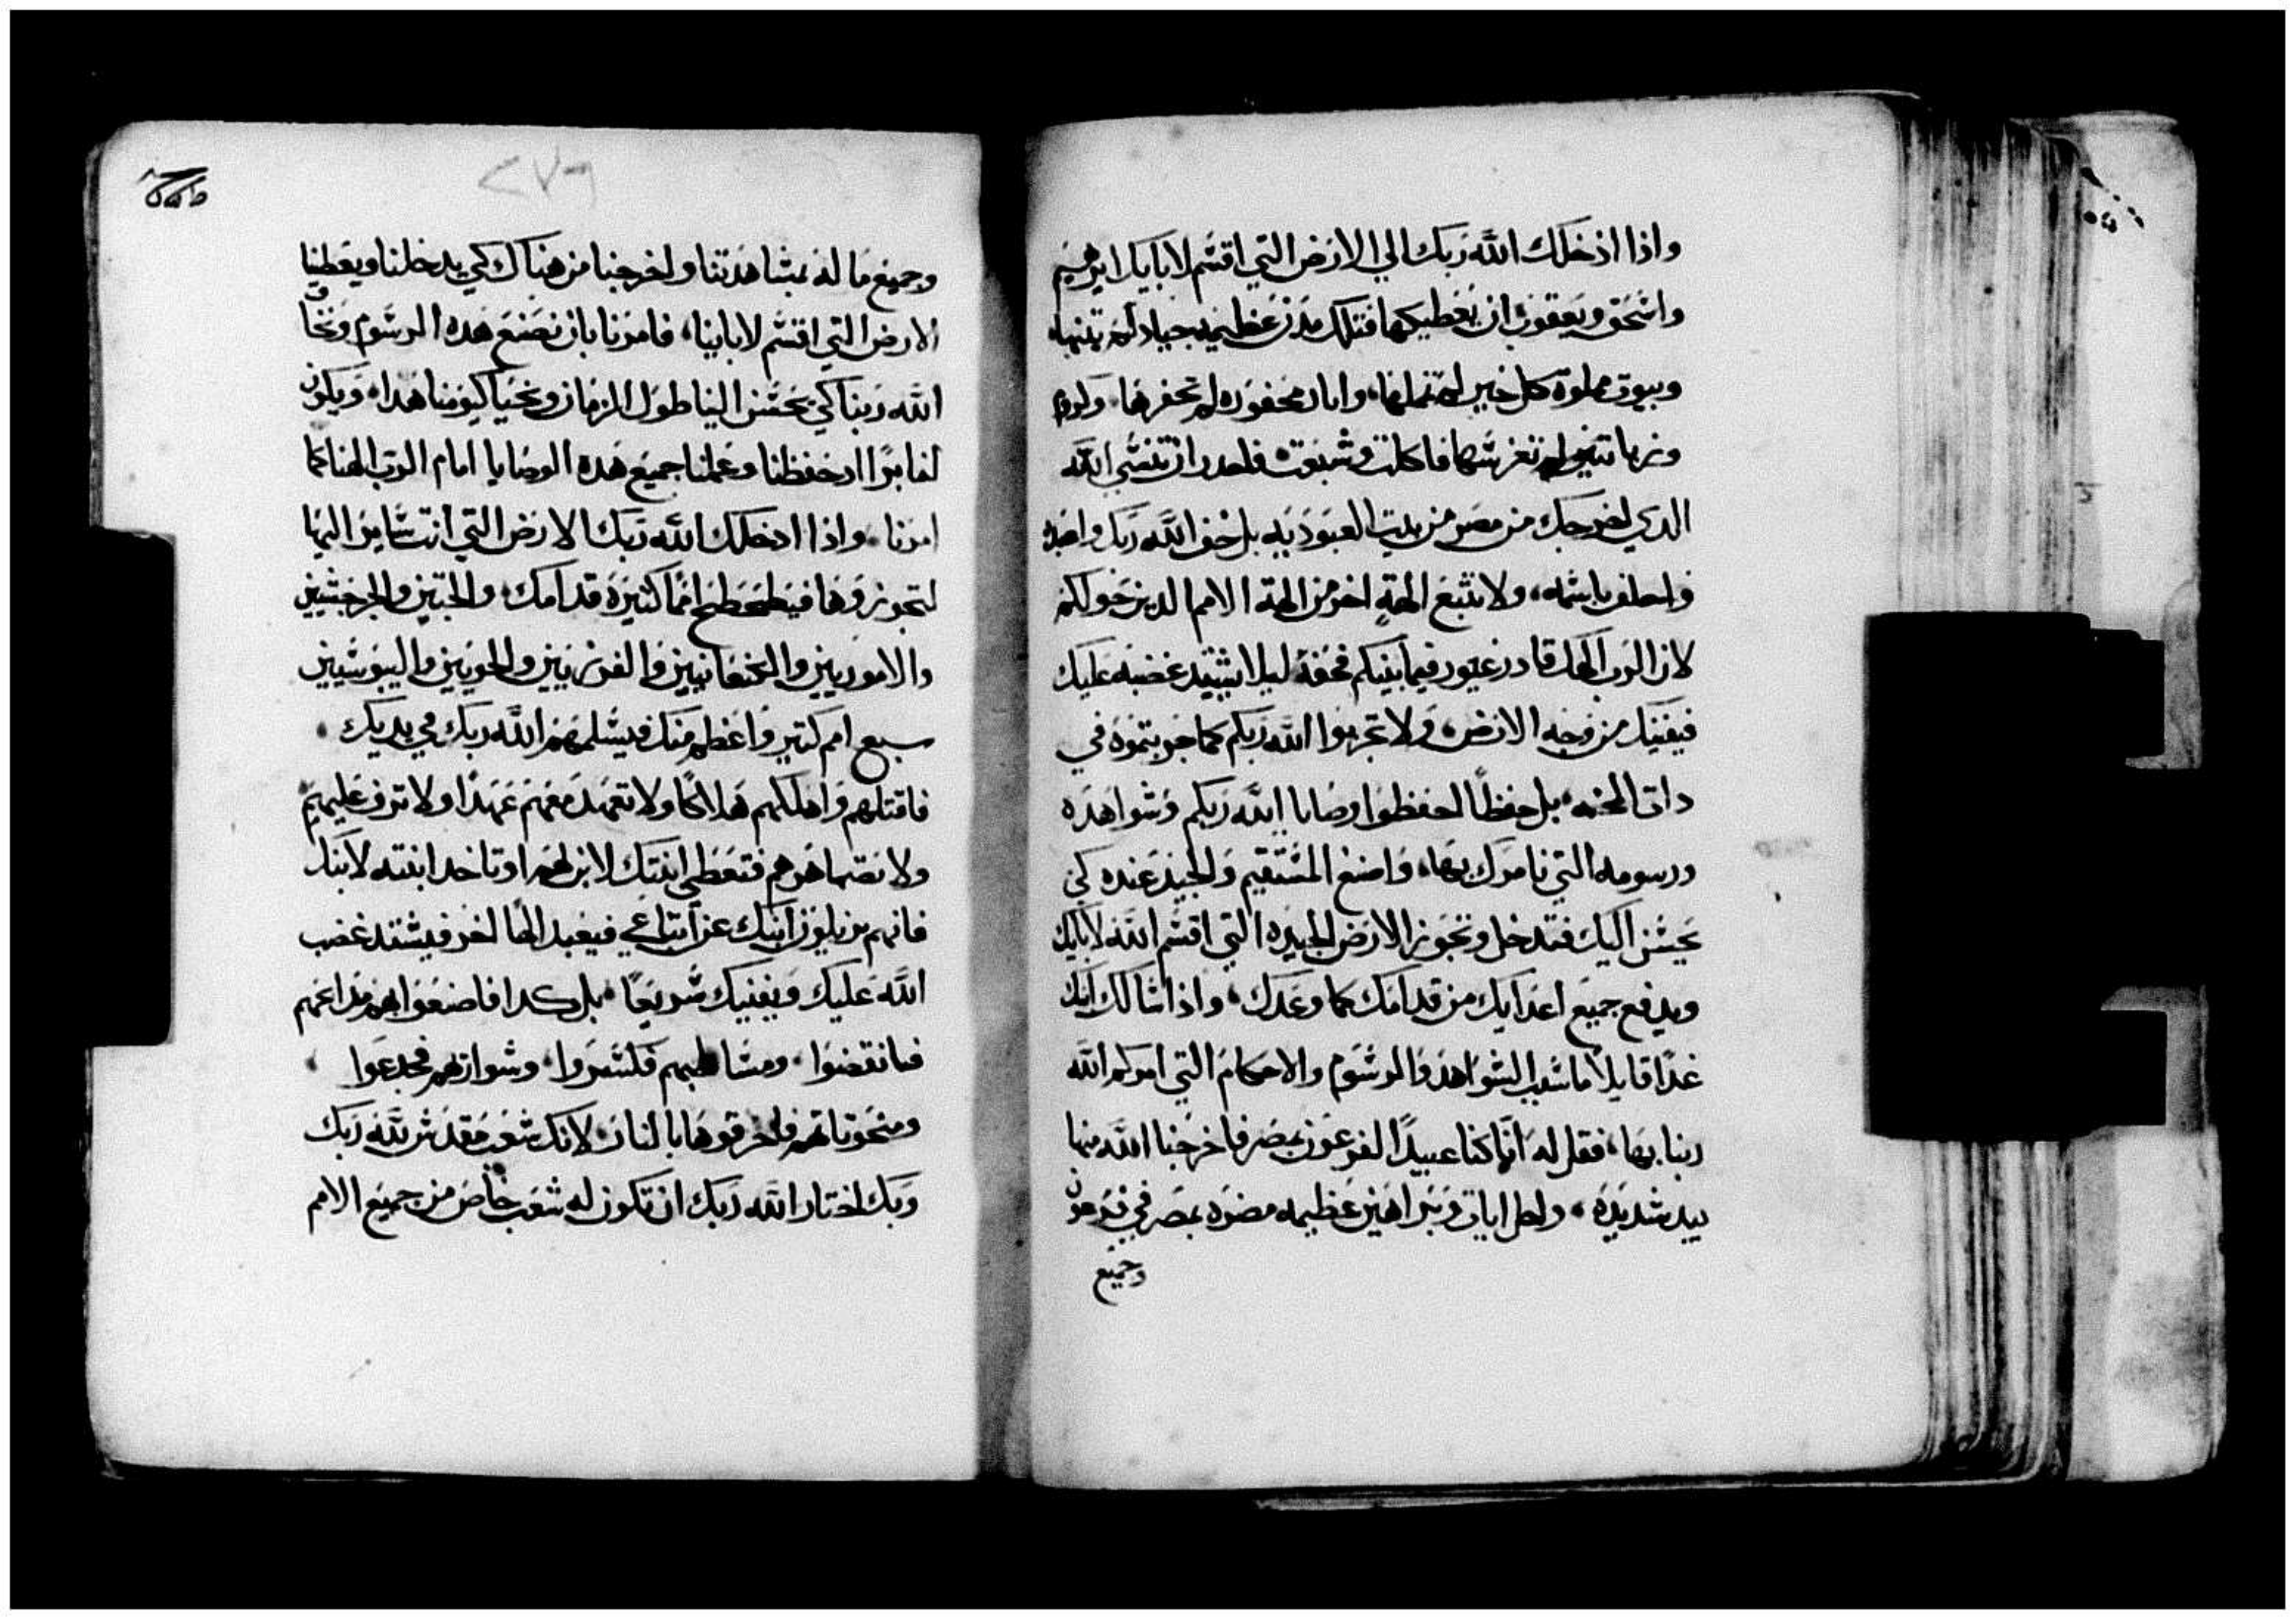 واذا ادخلك الله ربك الي الارض التي اقسم لابايك ابرهيم
واسحق ويعقوب ان يعطيكها فتلك مدن عظيمه جياد لم تبنها
وبيوت مملوة كل خير لم تملاها، وابار محفوره لم تحفرها، وكروم
وزيتونا لم تغرسها فاكلت وشبعت فاحدر ان تنسي الله
الدي اخرجك من مصر من بيت العبودية بل خف الله ربك واعبد
واحلف باسمه، ولا تتبع الهة اخر من الهة الامم الدين حولكم
لان الرب الهك قادر غيور فيما بينكم فخفه ليلا يشتد غضبه عليك
فيفنيك من وجه الارض، ولا تجربوا الله ربكم كما جربتموه في
دات المحنه، بل حفظًا احفظوا وصايا الله ربكم وشواهده
ورسومه التي نامرك بها، واصنع المستقيم والجيد عنده كي
يحسن اليك فتدخل وتجوز الارض الجيده التي اقسم الله لابايك
ويدفع جميع اعدايك من قدامك كما وعدك، واذا سالك ابنك
غدًا قايلًا ما سبب الشواهد والرسوم والاحكام التي امركم الله
ربنا بها، فقل له انّا كنا عبيدًا لفرعون بمصر فاخرجنا الله منها
بيد شديدة، واحل ايات وبراهين عظيمه مضره بمصر في فرعون
وجميع
٢٧٩
وجميع ما له بمشاهدتنا واخرجنا من هناك كي يدخلنا ويعطينا
الارض التي اقسم لاباينا، فامرنا بان نصنع هده الرسوم ونخاف
الله ربنا كي يحسن الينا طول الزمان ونحيا كيومنا هدا، ويكون
لنا برًا اد حفظنا وعملنا جميع هده الوصايا امام الرب الهنا كما
امرنا، واذا ادخلك الله ربك الارض التي انت ساير اليها
لتجوزوها فيطحطح امًا كثيرة قدامك، والحتيين والجرجسيين
والاموريين والكنعانيين والفرزيين والحويين واليبوسيين
سبع امم كتير واعظم منك فيسلمهم الله ربك في يديك
فاقتلهم واهلكهم هلاكًا ولا تعهد معهم عهدًا ولا ترف عليهم
ولا تصاهرهم فتعطي ابنتك لابن لهم او تاخد ابنته لابنك
فانهم يزيلون ابنك عن اتباعي فيعبد الهًا اخر فيشتد غضب
الله عليك ويفنيك سريعًا، بل كدا فاصنعوا بهم مداعهم
فانقضوا، ومساطبهم فكسروا، وسواريهم فجدعوا
ومنحوتاتهم فاحرقوها بالنار لانك شعب مقدس لله ربك
وبك اختار الله ربك ان تكون له شعب خاص من جميع الامم